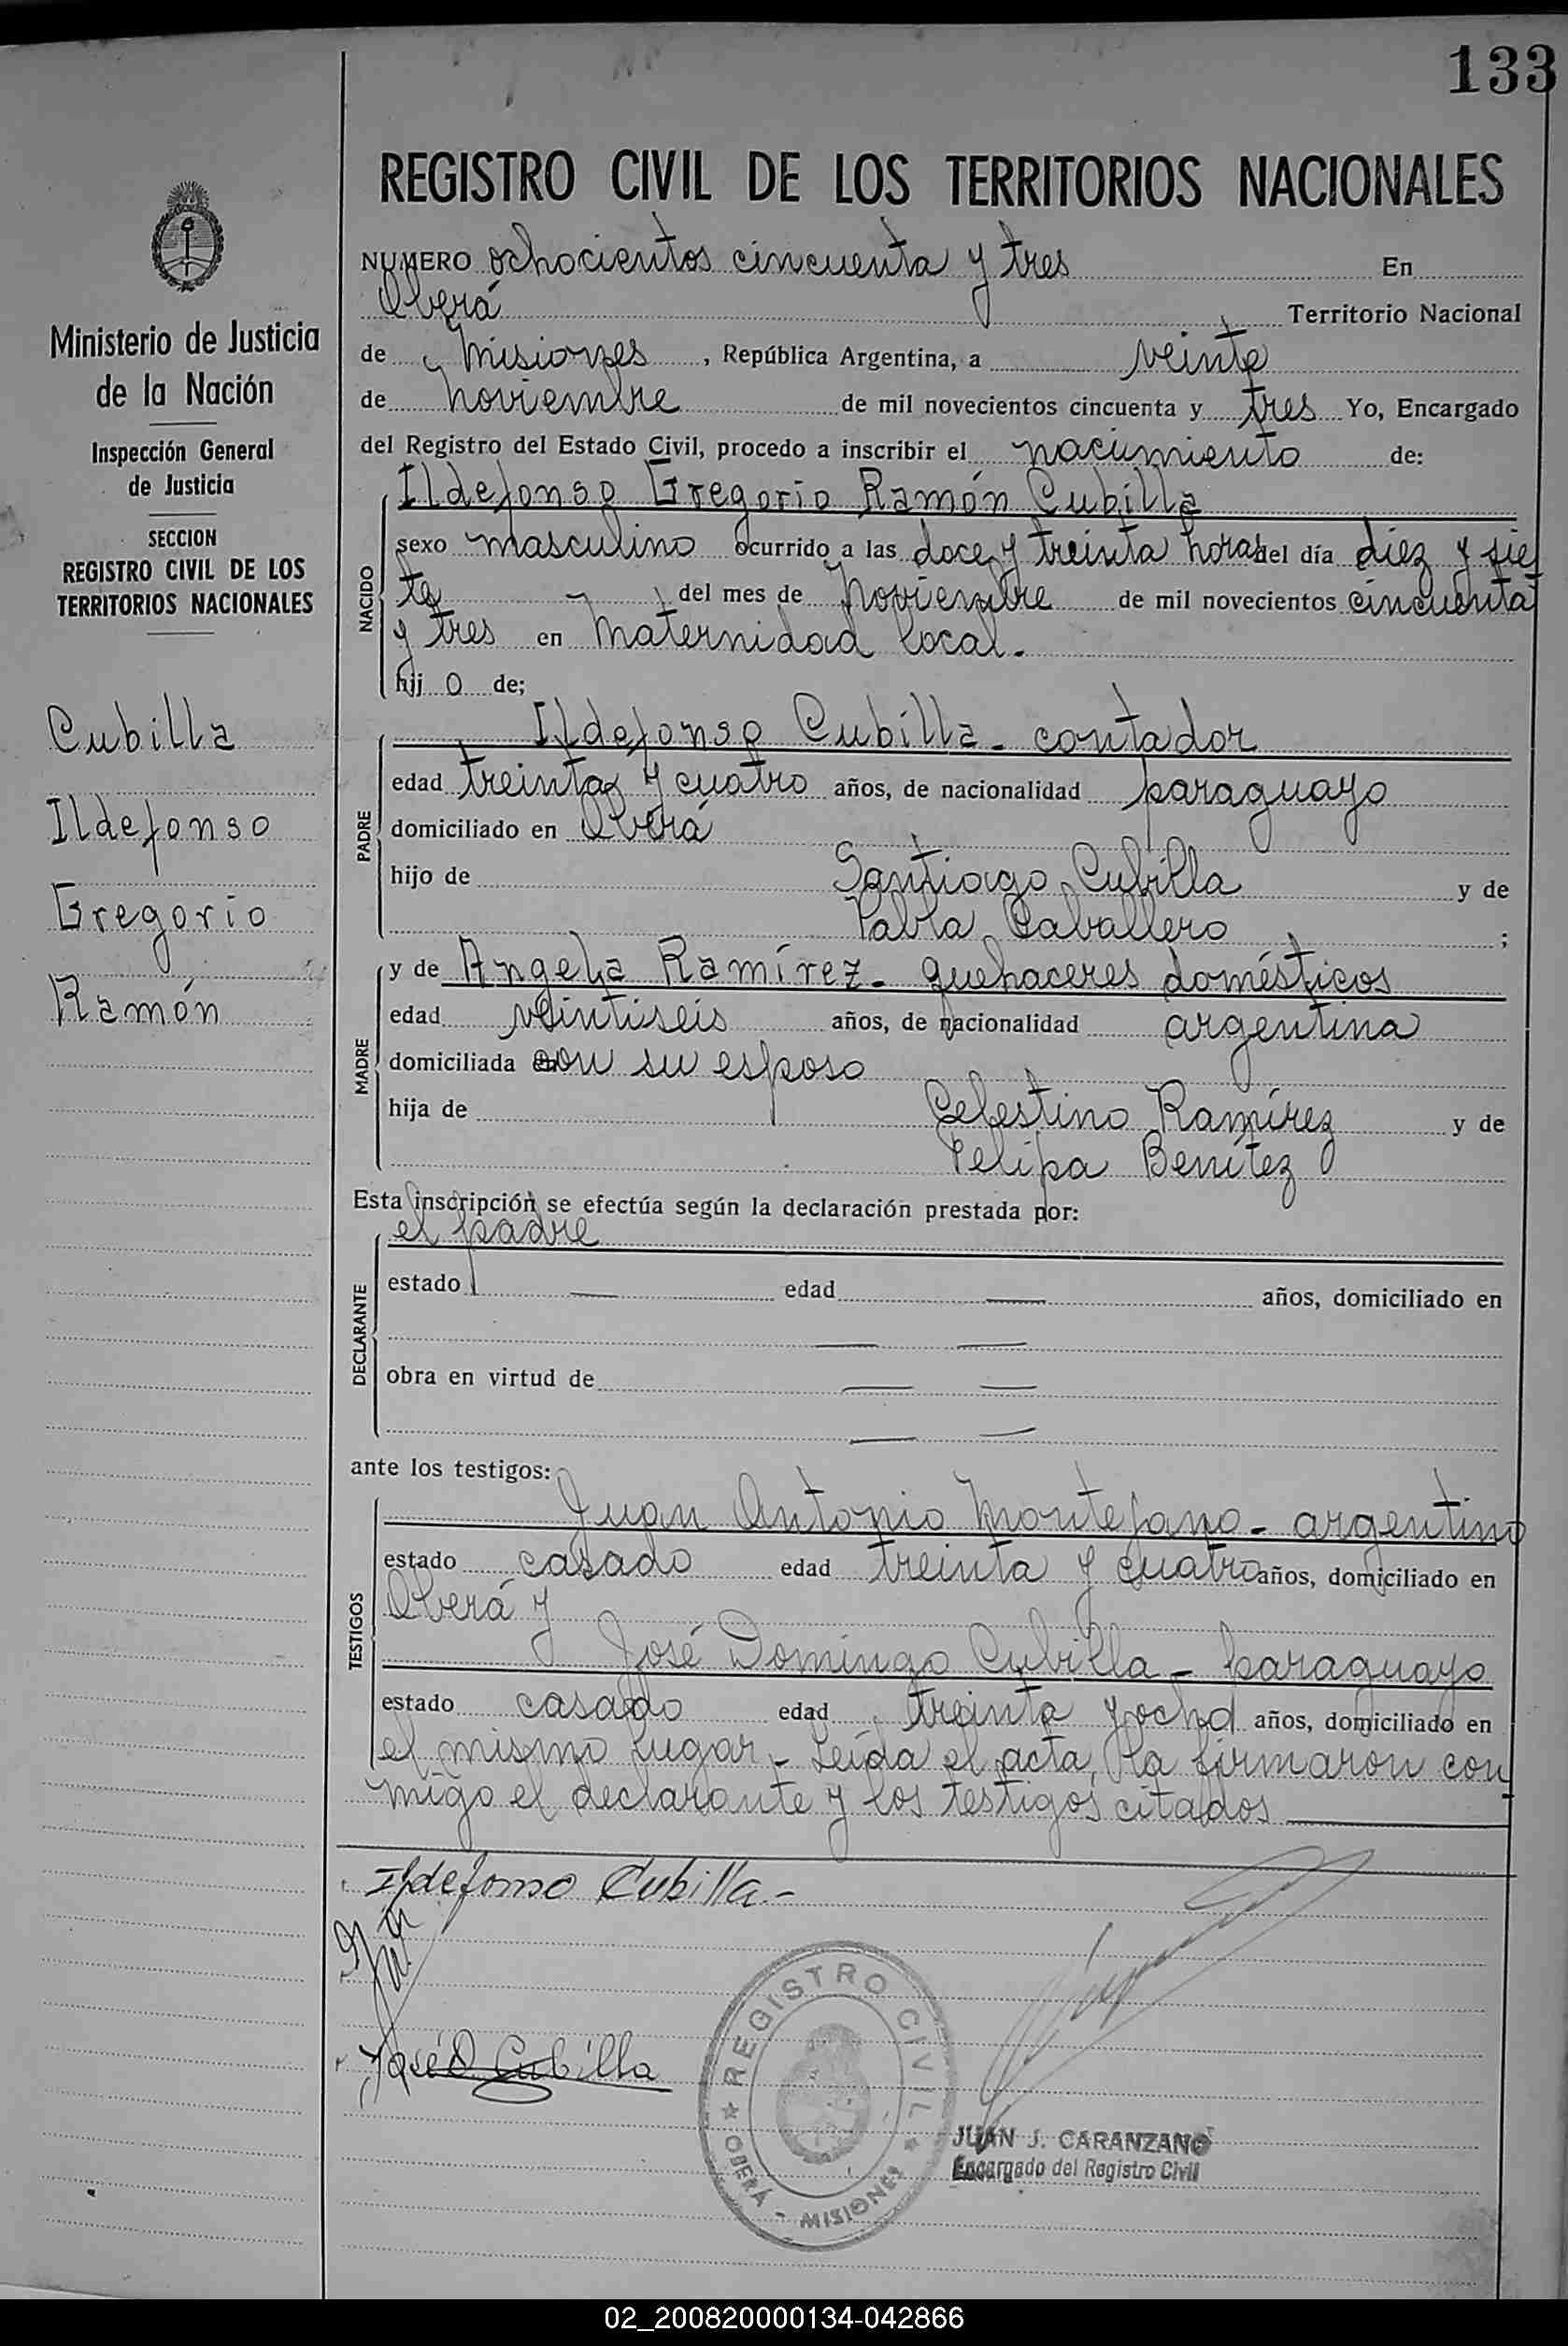 133
REGISTRO CIVIL DE LOS TERRITORIOS NACIONALES
Ministerio de Justicia
de la Nación
Inspección General
de Justicia
SECCION
REGISTRO CIVIL DE LOS
TERRITORIOS NACIONALES
Cubilla
Ildefonso
Gregorio
Ramón
NUMERO ochocientos cincuenta y tres En
Oberá Territorio Nacional
de Misiones, República Argentina, a veinte
de noviembre de mil novecientos cincuenta y tres Yo, Encargado
del Registro del Estado Civil, procedo a inscribir el nacimiento de:
NACIDO
Ildefonso Gregorio Ramón Cubilla
sexo masculino ocurrido a las doce y treinta horas del día diez y sie
te del mes de noviembre de mil novecientos cincuenta
y tres en Maternidad local.
hij o de;
PADRE
Ildefonso Cubilla - contador
edad treinta y cuatro años, de nacionalidad paraguayo
domiciliado en Oberá
hijo de Santiago Cubilla y de
Pabla Caballero ;
MADRE
y de Angela Ramírez - quehaceres domésticos
edad veintiseis años, de nacionalidad argentina
domiciliada con su esposo
hija de Celestino Ramírez y de
Felipa Benítez
Esta inscripción se efectúa según la declaración prestada por:
DECLARANTE
el padre
estado — edad — años, domiciliado en
— —
obra en virtud de — —
— —
ante los testigos:
TESTIGOS
Juan Antonio Montefano - argentino
estado casado edad treinta y cuatro años, domiciliado en
Oberá y
José Domingo Cubilla - paraguayo
estado casado edad treinta y ocho años, domiciliado en
el mismo lugar.- Leída el acta, la firmaron con
migo el declarante y los testigos citados
Ildefonso Cubilla.-
José D. Cubilla
REGISTRO CIVIL
OBERA - MISIONES
JUAN J. CARANZANO
Encargado del Registro Civil
02_200820000134-042866